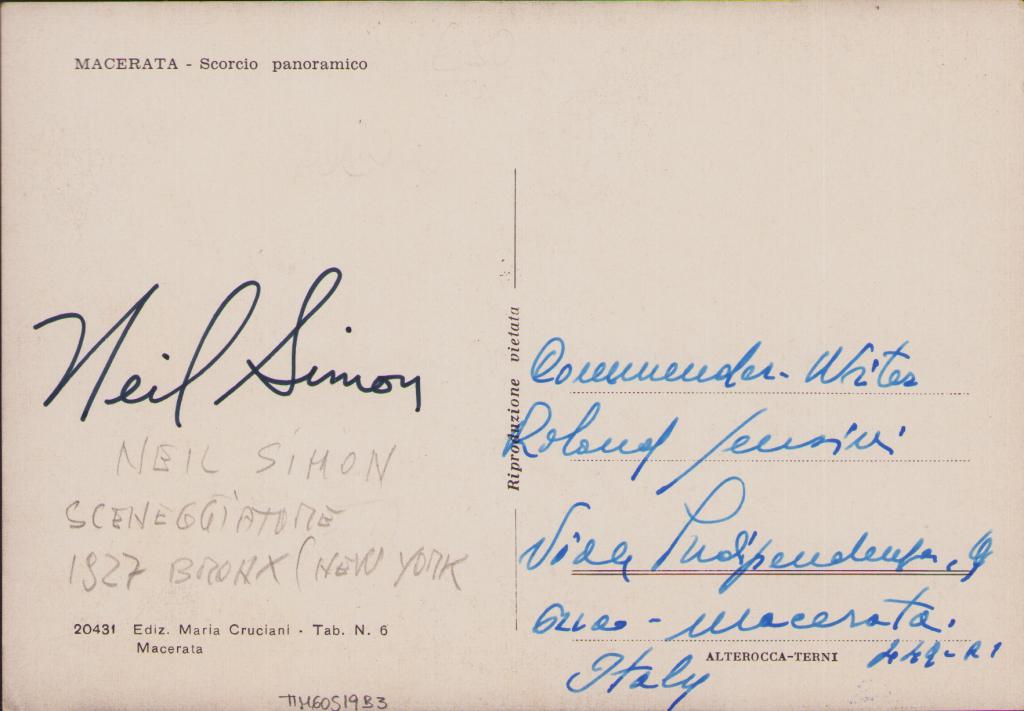 MACERATA - Scorcio panoramico
Neil Simon
NEIL SIMON
SCENEGGIATORE
1927 BRONX (NEW YORK
20431 Ediz. Maria Cruciani - Tab. N. 6
Macerata
Riproduzione vietata
Commender. Writer
Roland
Viale Indipendenza, 9
- Macerata.
Italy
ALTEROCCA-TERNI